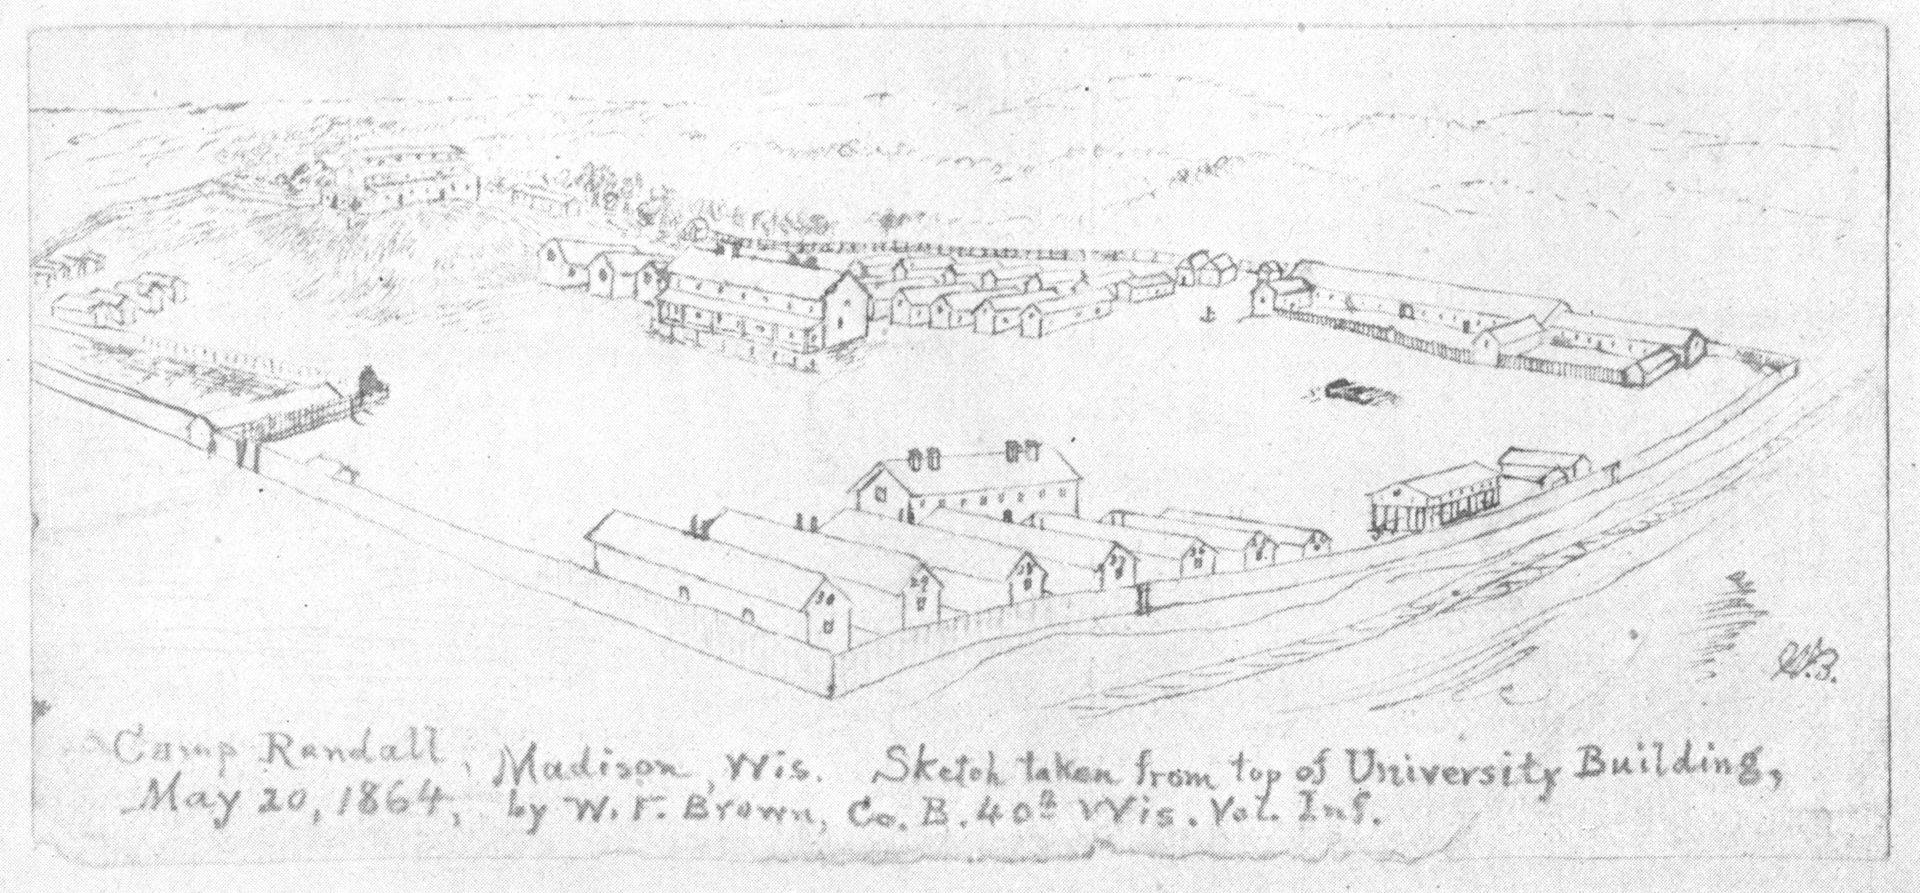 30
29
W.B.
Camp Randall, Madison, Wis. Sketch taken from top of University Building,
May 20, 1864, by W. F. Brown, Co. B. 40th Wis. Vol. Inf.